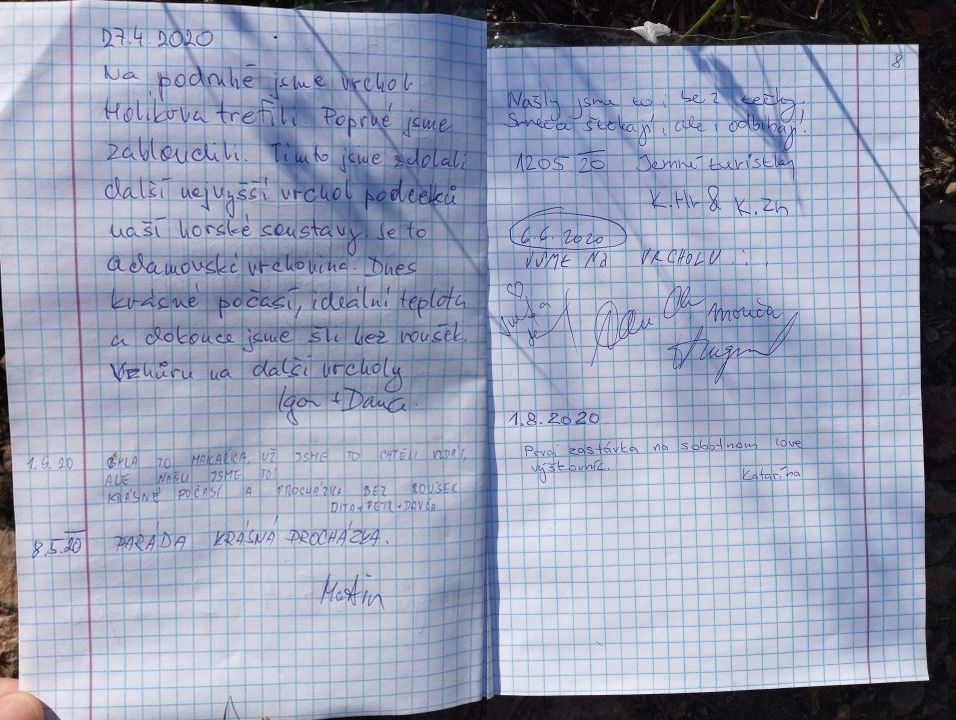 27.4.2020
Na podruhé jsme vrchol
Holíkova trefili. Poprvé jsme
zabloudili. Tímto jsme zdolali
další nejvyšší vrchol podcelků
naší horské soustavy. Je to
adamovská vrchovina. Dnes
krásné počasí, ideální teplota
a dokonce jsme šli bez roušek.
Vzhůru na další vrcholy
Igor + Dana.
1.5.20 BYLA TO MAKAČKA, UŽ JSME TO CHTĚLI VZDÁT,
ALE NAŠLI JSME TO!
KRÁSNÉ POČASÍ A PROCHÁZKA BEZ ROUŠEK
DITA + PETR + DAVČA
8.5.20 PARÁDA KRÁSNÁ PROCHÁZKA.
Martin
8
Našly jsme to i bez tečky.
Srneča štekají, ale i odbíhají!
1205 20 Jemné turistky
K.Hr & K.Zh
6.6.2020
JSME NA VRCHOLU . . .
Monča
1.8.2020
První zastávka na sobotnom love
výškovnic.
Katarína